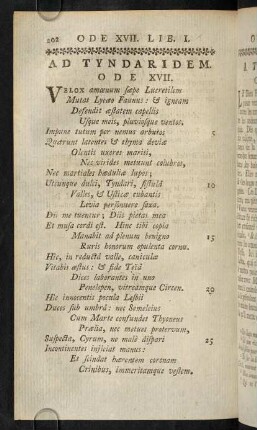 202 ODE XVII. LIB. I.
AD TYNDARIDEM.
ODE XVII.
VELOX amœnum sæpe Lucretilem
Mutat Lycæo Faunus: & igneam
Defendit æstatem capellis
Usque meis, pluviosque ventos.
Impune tutum per nemus arbutos 5
Quærunt latentes & thyma deviæ
Olentis uxores mariti,
Nec virides metuunt colubras,
Nec martiales hæduliæ lupos;
Utcunque dulci, Tyndari, fistulâ 10
Valles, & Usticæ cubantis
Levia personuere saxa.
Dii me tuentur; Diis pietas mea
Et musa cordi est. Hinc tibi copia
Manabit ad plenum benigno 15
Ruris honorum opulenta cornu.
Hîc, in reductâ valle, caniculæ
Vitabis æstus: & fide Teïâ
Dices laborantes in uno
Penelopen, vitreamque Circen. 20
Hîc innocentis pocula Lesbii
Duces sub umbrâ: nec Semeleius
Cum Marte confundet Thyoneus
Prælia, nec metues protervum,
Suspecta, Cyrum, ne malè dispari 25
Incontinentes injiciat manus:
Et scindat hærentem coronam
Crinibus, immeritamque vestem.